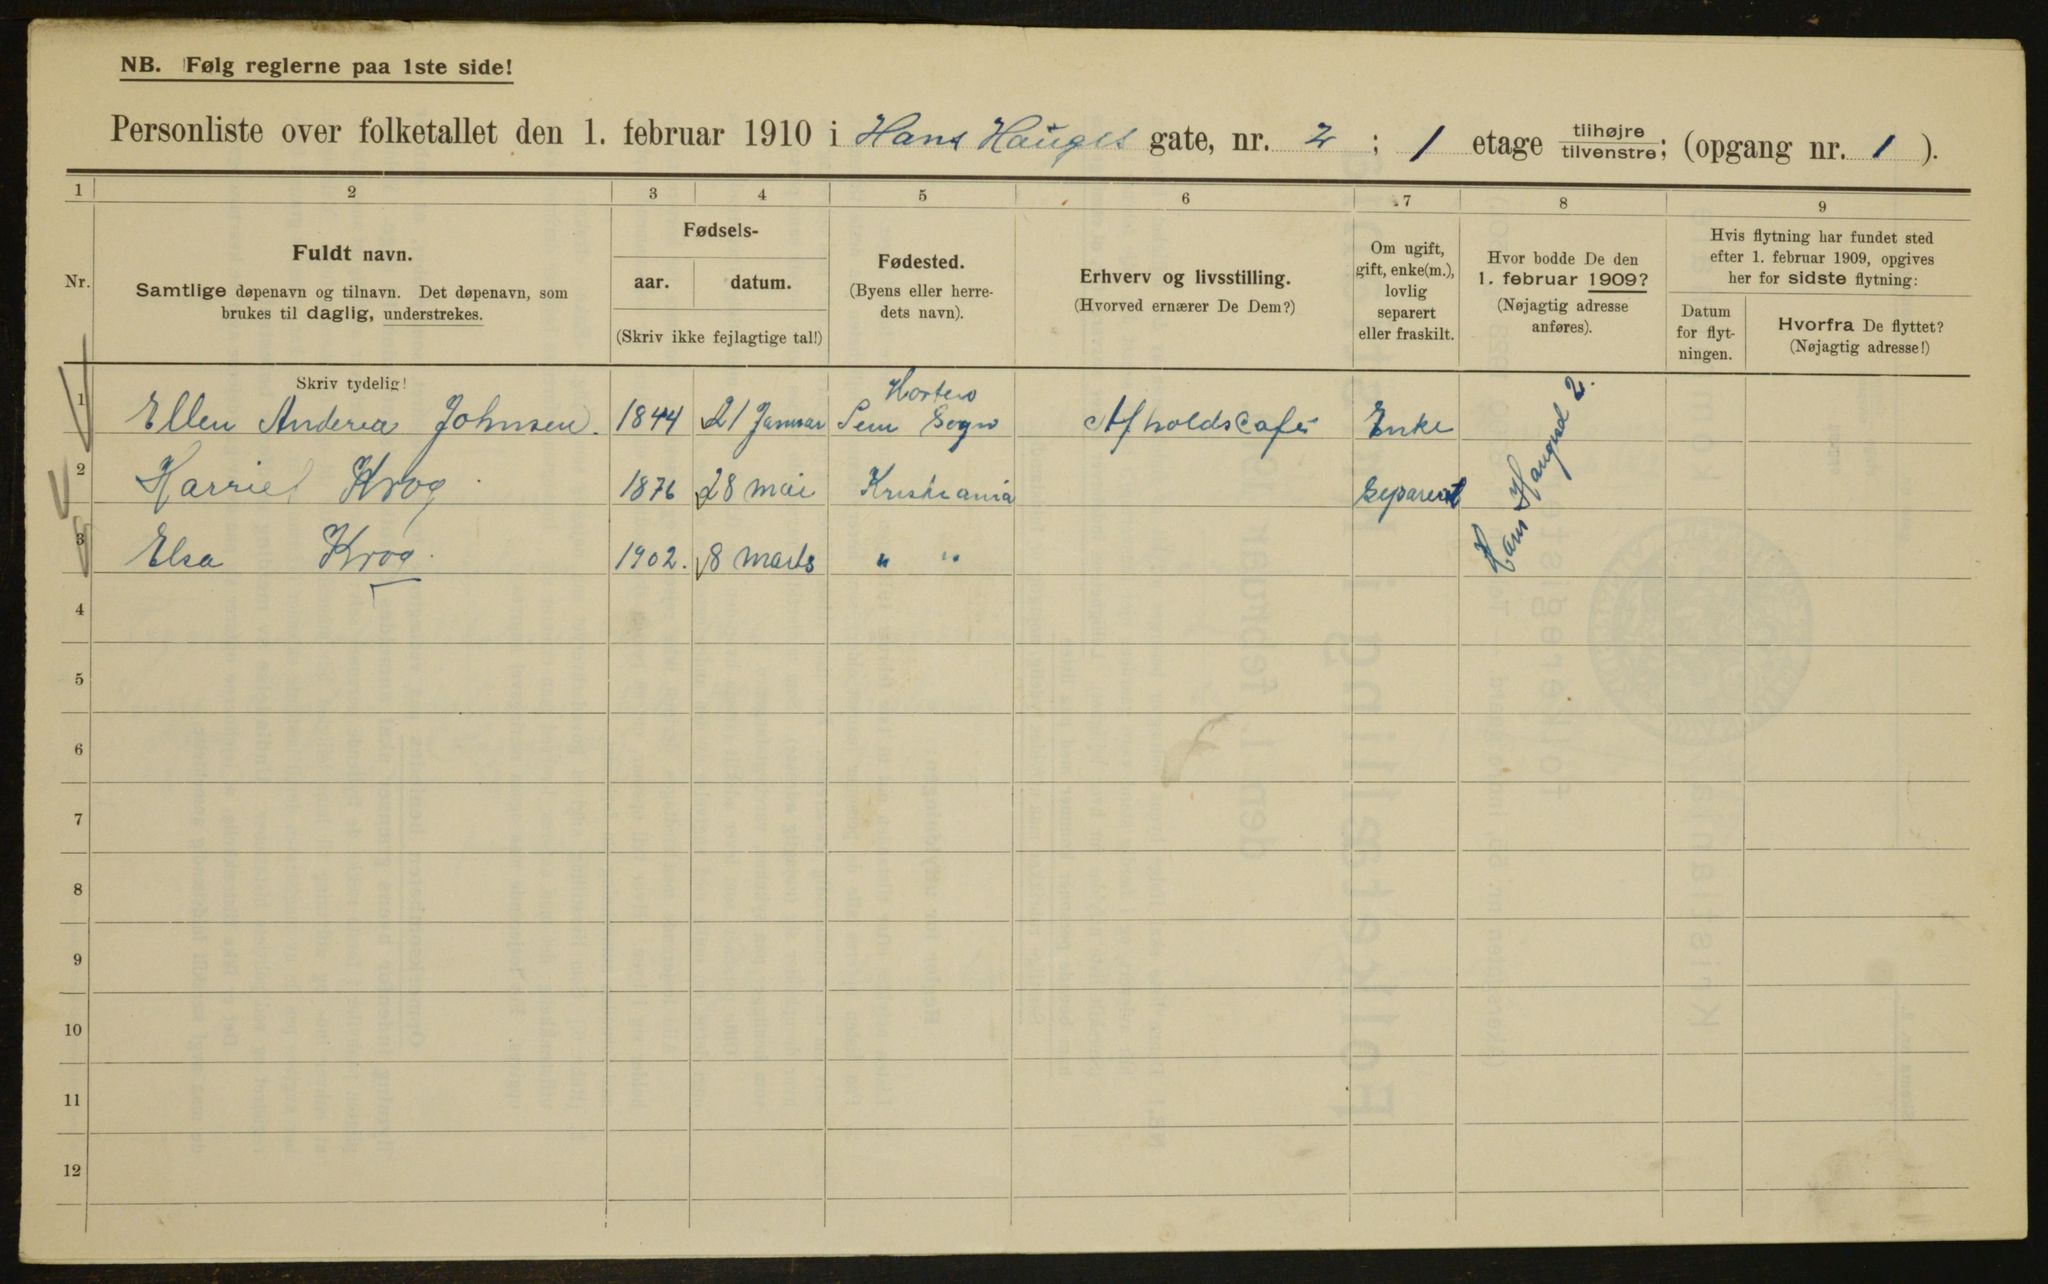 NB. Følg reglerne paa 1ste side!
Personliste over folketallet den 1. februar 1910 i Hans Hauges gate, nr. 2 ; 1 etage tilhøjre/tilvenstre; (opgang nr. 1 ).
1 2 3 4 5 6 7 8 9
Nr.
Fuldt navn.
Samtlige døpenavn og tilnavn. Det døpenavn, som
brukes til daglig, understrekes.
Skriv tydelig!
Fødsels-
aar. datum.
(Skriv ikke fejlagtige tal!)
Fødested.
(Byens eller herre-
dets navn).
Erhverv og livsstilling.
(Hvorved ernærer De Dem?)
Om ugift,
gift, enke(m.),
lovlig
separert
eller fraskilt.
Hvor bodde De den
1. februar 1909?
(Nøjagtig adresse
anføres).
Hvis flytning har fundet sted
efter 1. februar 1909, opgives
her for sidste flytning:
Datum
for flyt-
ningen.
Hvorfra De flyttet?
(Nøjagtig adresse!)
Horten
1 Ellen Anderea Johnsen. 1844 21 Januar Sem Sogn Afholdscafé Enke
2 Harriet Krog 1876 28 mai Kristiania Separert
3 Elsa Krog. 1902. 8 marts " "
Hans Haugsd 2.
4
5
6
7
8
9
10
11
12